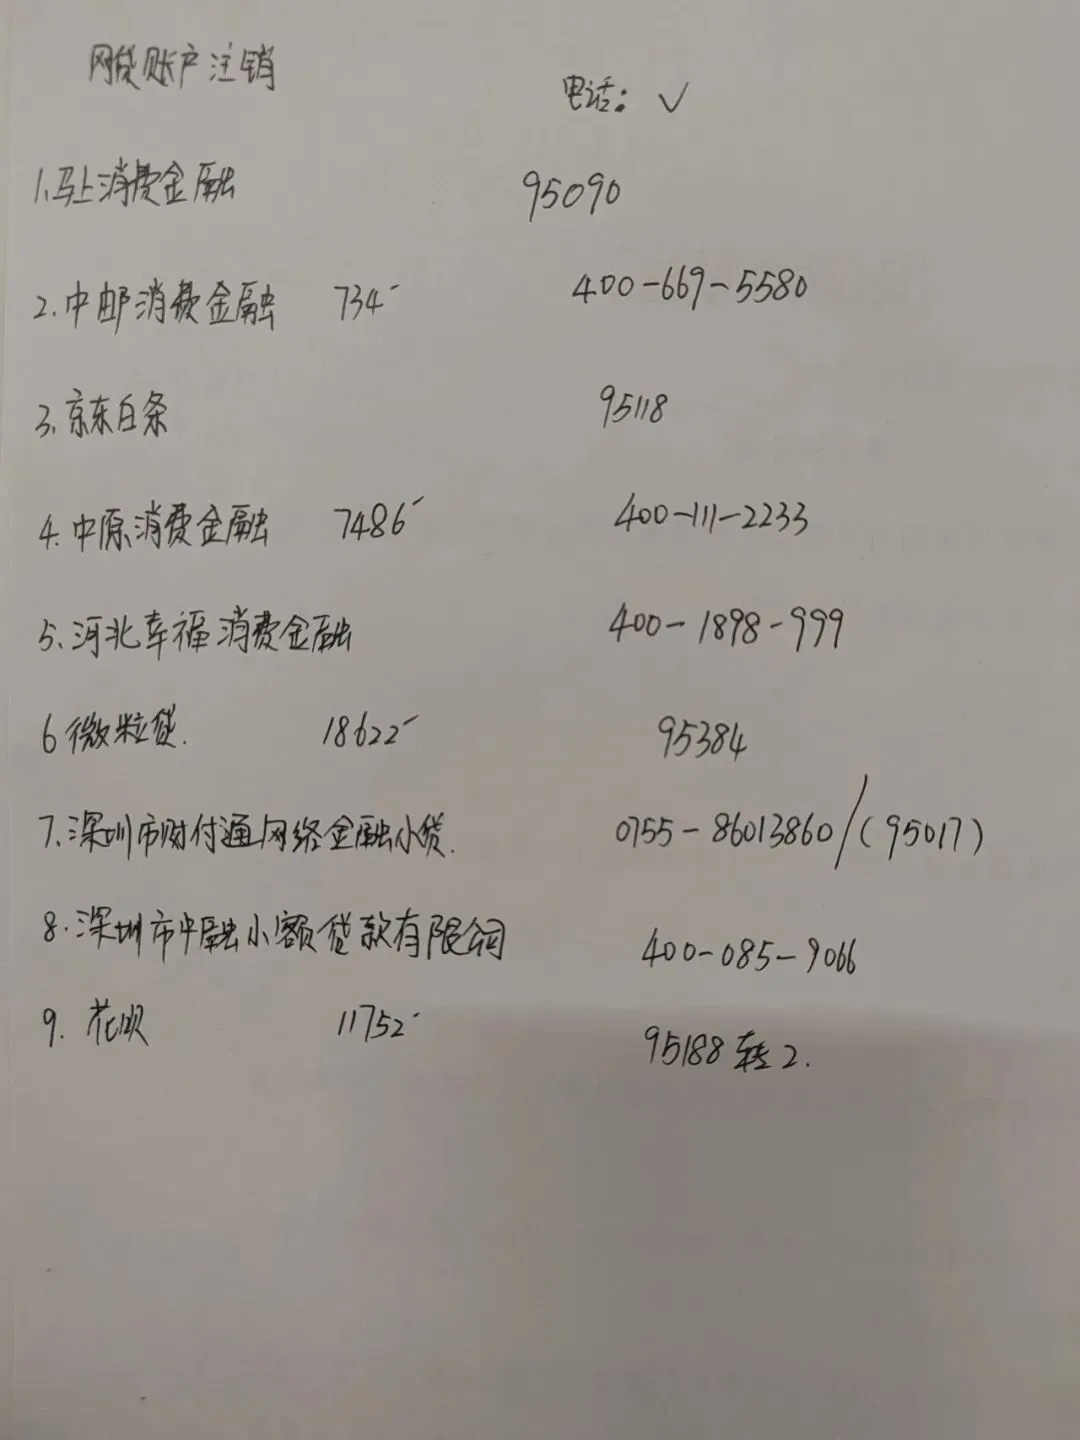 网贷账户注销
电话: ✓
1.马上消费金融 95090
2.中邮消费金融 734 400-669-5580
3.京东白条 95118
4.中原消费金融 7486 400-111-2233
5.河北幸福消费金融 400-1898-999
6 微粒贷. 18622 95384
7.深圳市财付通网络金融小贷. 0755-86013860/(95017)
8.深圳市中融小额贷款有限公司 400-085-9066
9. 花呗 11752 95188转2.